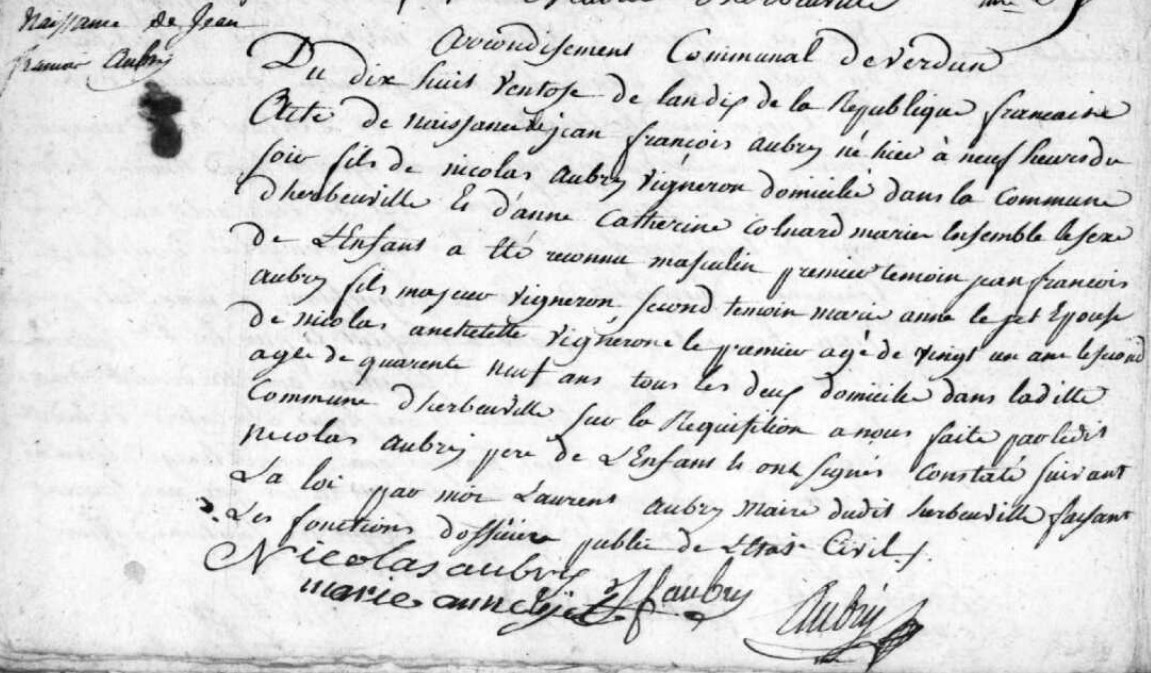 naissance de Jean
francois Aubry
Arrondissement Communal de verdun
Du dix huit ventose de lan dix de la Republique francaise
Acte de naissance de jean françois aubry né hier à neuf heures du
soir fils de nicolas aubry vigneron domicilié dans la Commune
dherbeuville Et d'anne Catherine Colnard mariee Ensemble le sexe
de L'Enfant a Eté reconnu masculin premier temoin jean francois
aubry fils majeur vigneron, second temoin marie anne le jet Epouse
de nicolas vignerone le premier agé de vingt un ans le second
agée de quarente neuf ans tous les deux domicilié dans laditte
Commune dherbeuville sur la Requisition a nous faite par ledit
nicolas aubry pere de L'Enfant Et ont signés Constaté suivant
La loi par moi Laurent aubry maire dudit herbeuville faisant
Les fonctions dofficier public de Letat Civil
Nicolas aubry
marie anne lejet J f aubry
Aubry